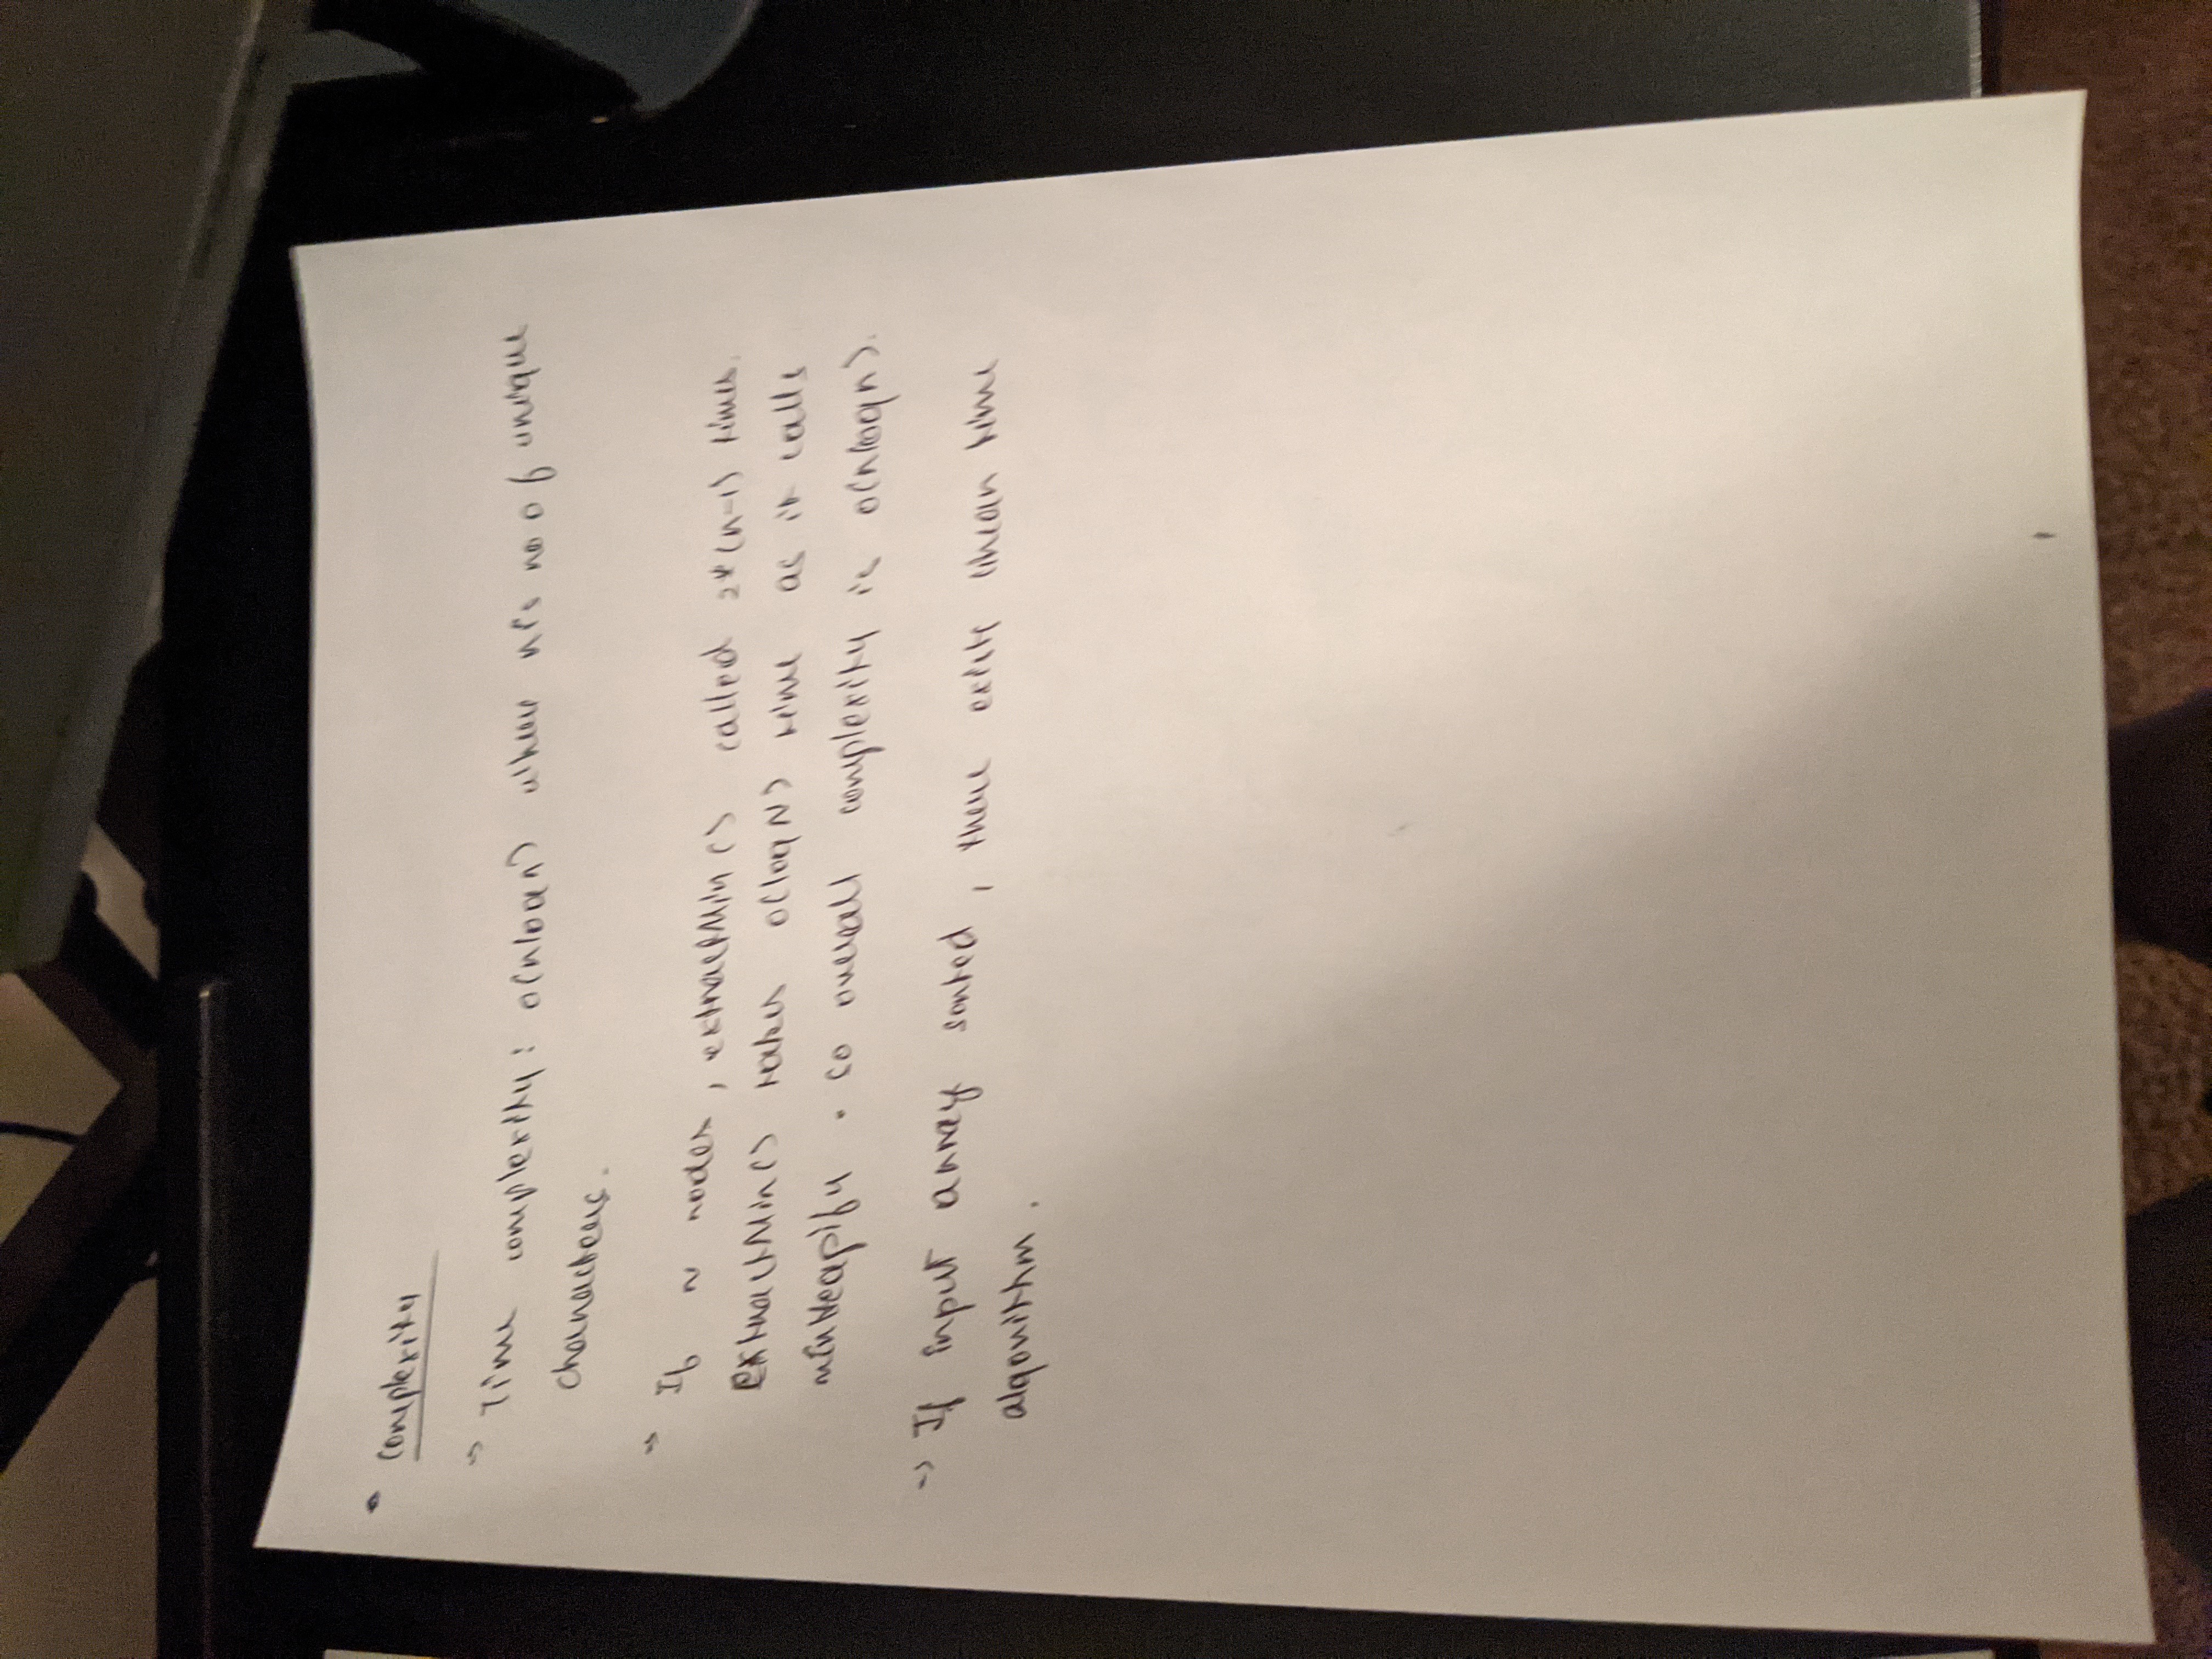 • Complexity
⇒ Time complexity: O(nlogn) where n is no of unique
characters.
⇒ If n nodes, extractMin() called 2*(n-1) times.
ExtractMin() takes O(logn) time as it calls
minHeapify. So overall complexity is O(nlogn).
⇒ If input array sorted, there exits linear time
algorithm.